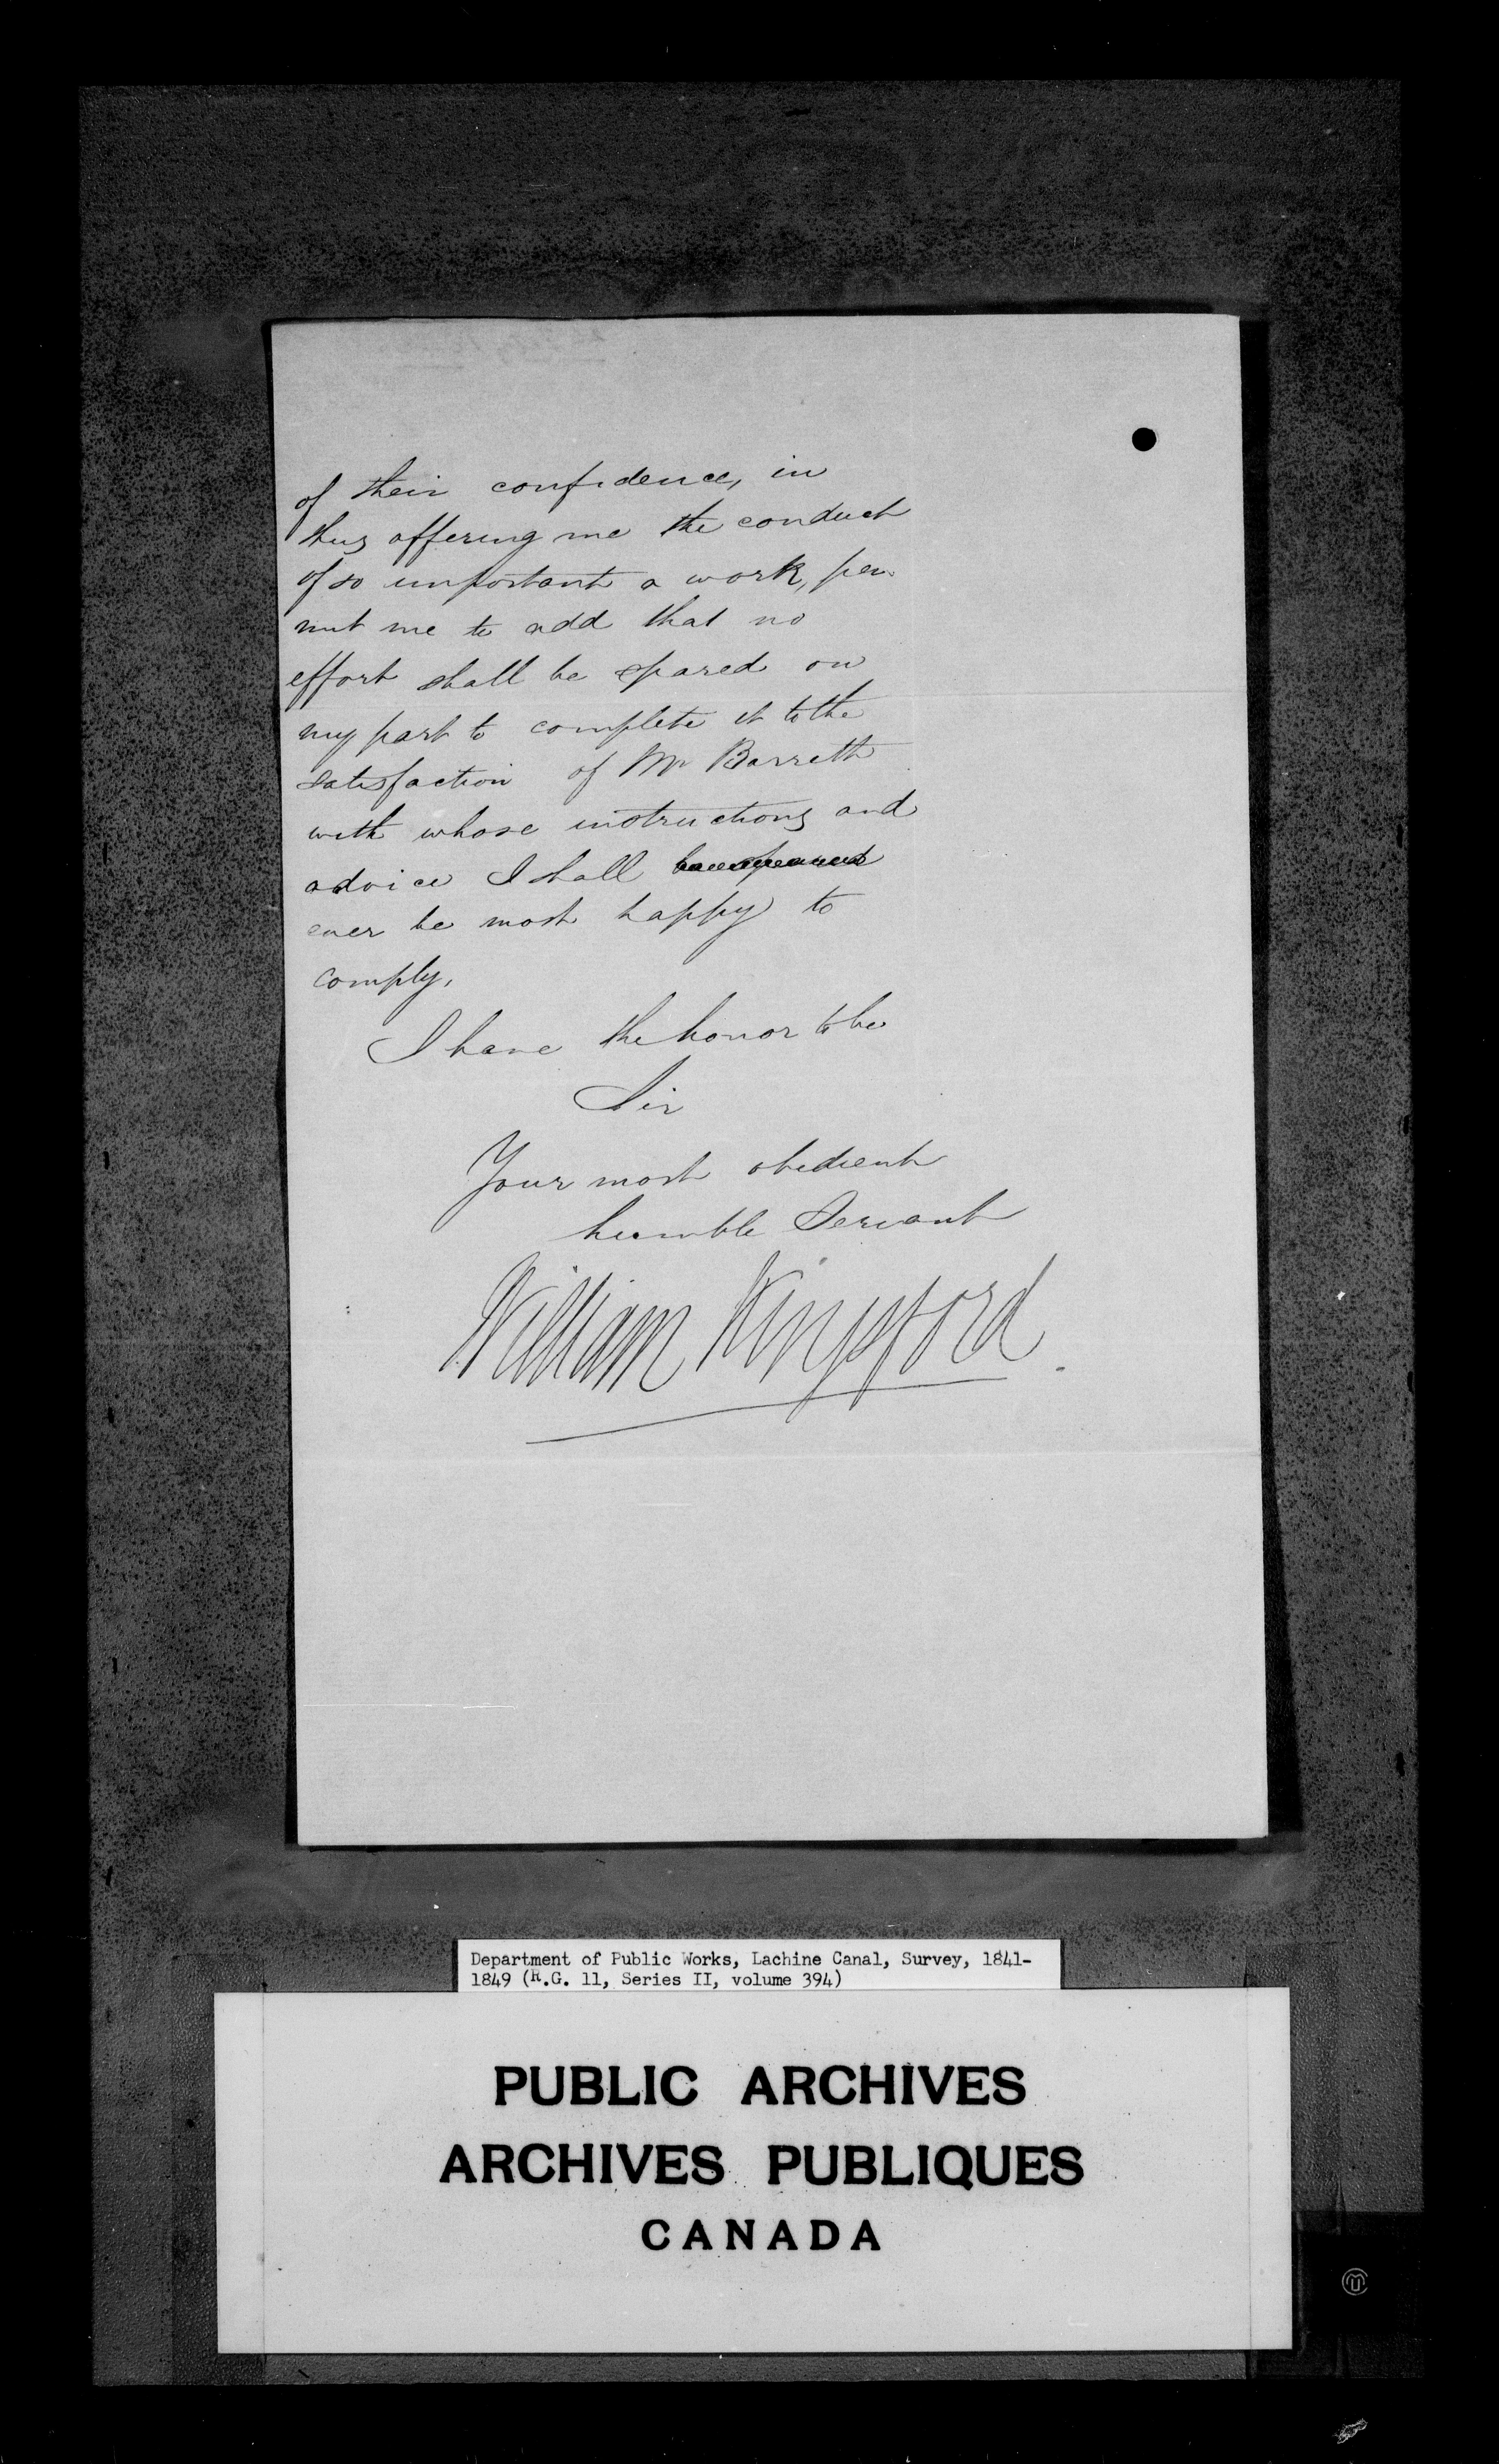 of their confidence, in
thus offering me the conduct
of so important a work, per
mit me to add that no
effort shall be spared on
my part to complete it to the
satisfaction of Mr Barrett
with whose instructions and
advice I shall
ever be most happy to
comply.
I have the honor to be
Sir
Your most obedient
humble Servant
William Kingsford.
Department of Public Works, Lachine Canal, Survey, 1841-
1849 (R.G. 11, Series II, volume 394)
PUBLIC ARCHIVES
ARCHIVES PUBLIQUES
CANADA